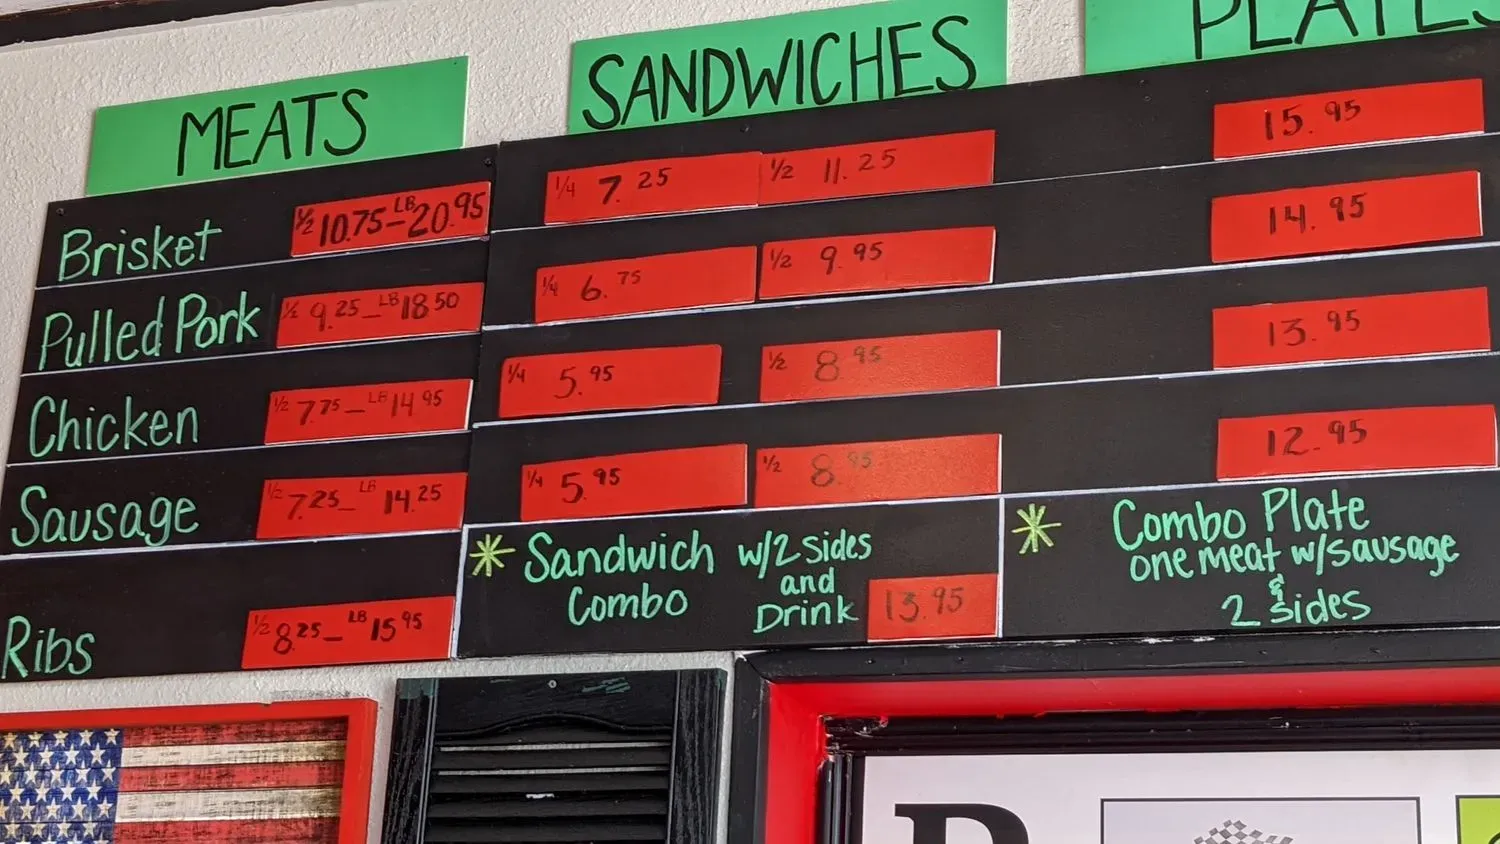 MEATS
SANDWICHES
PLATES
Brisket ½ 10.75-LB 20.95 ¼ 7.25 ½ 11.25 15.95
Pulled Pork ½ 9.25-LB 18.50 ¼ 6.75 ½ 9.95 14.95
Chicken ½ 7.75-LB 14.95 ¼ 5.95 ½ 8.95 13.95
Sausage ½ 7.25-LB 14.25 ¼ 5.95 ½ 8.95 12.95
Ribs ½ 8.25-LB 15.95
* Sandwich w/2 sides
Combo and
Drink 13.95
* Combo Plate
one meat w/sausage
&
2 sides